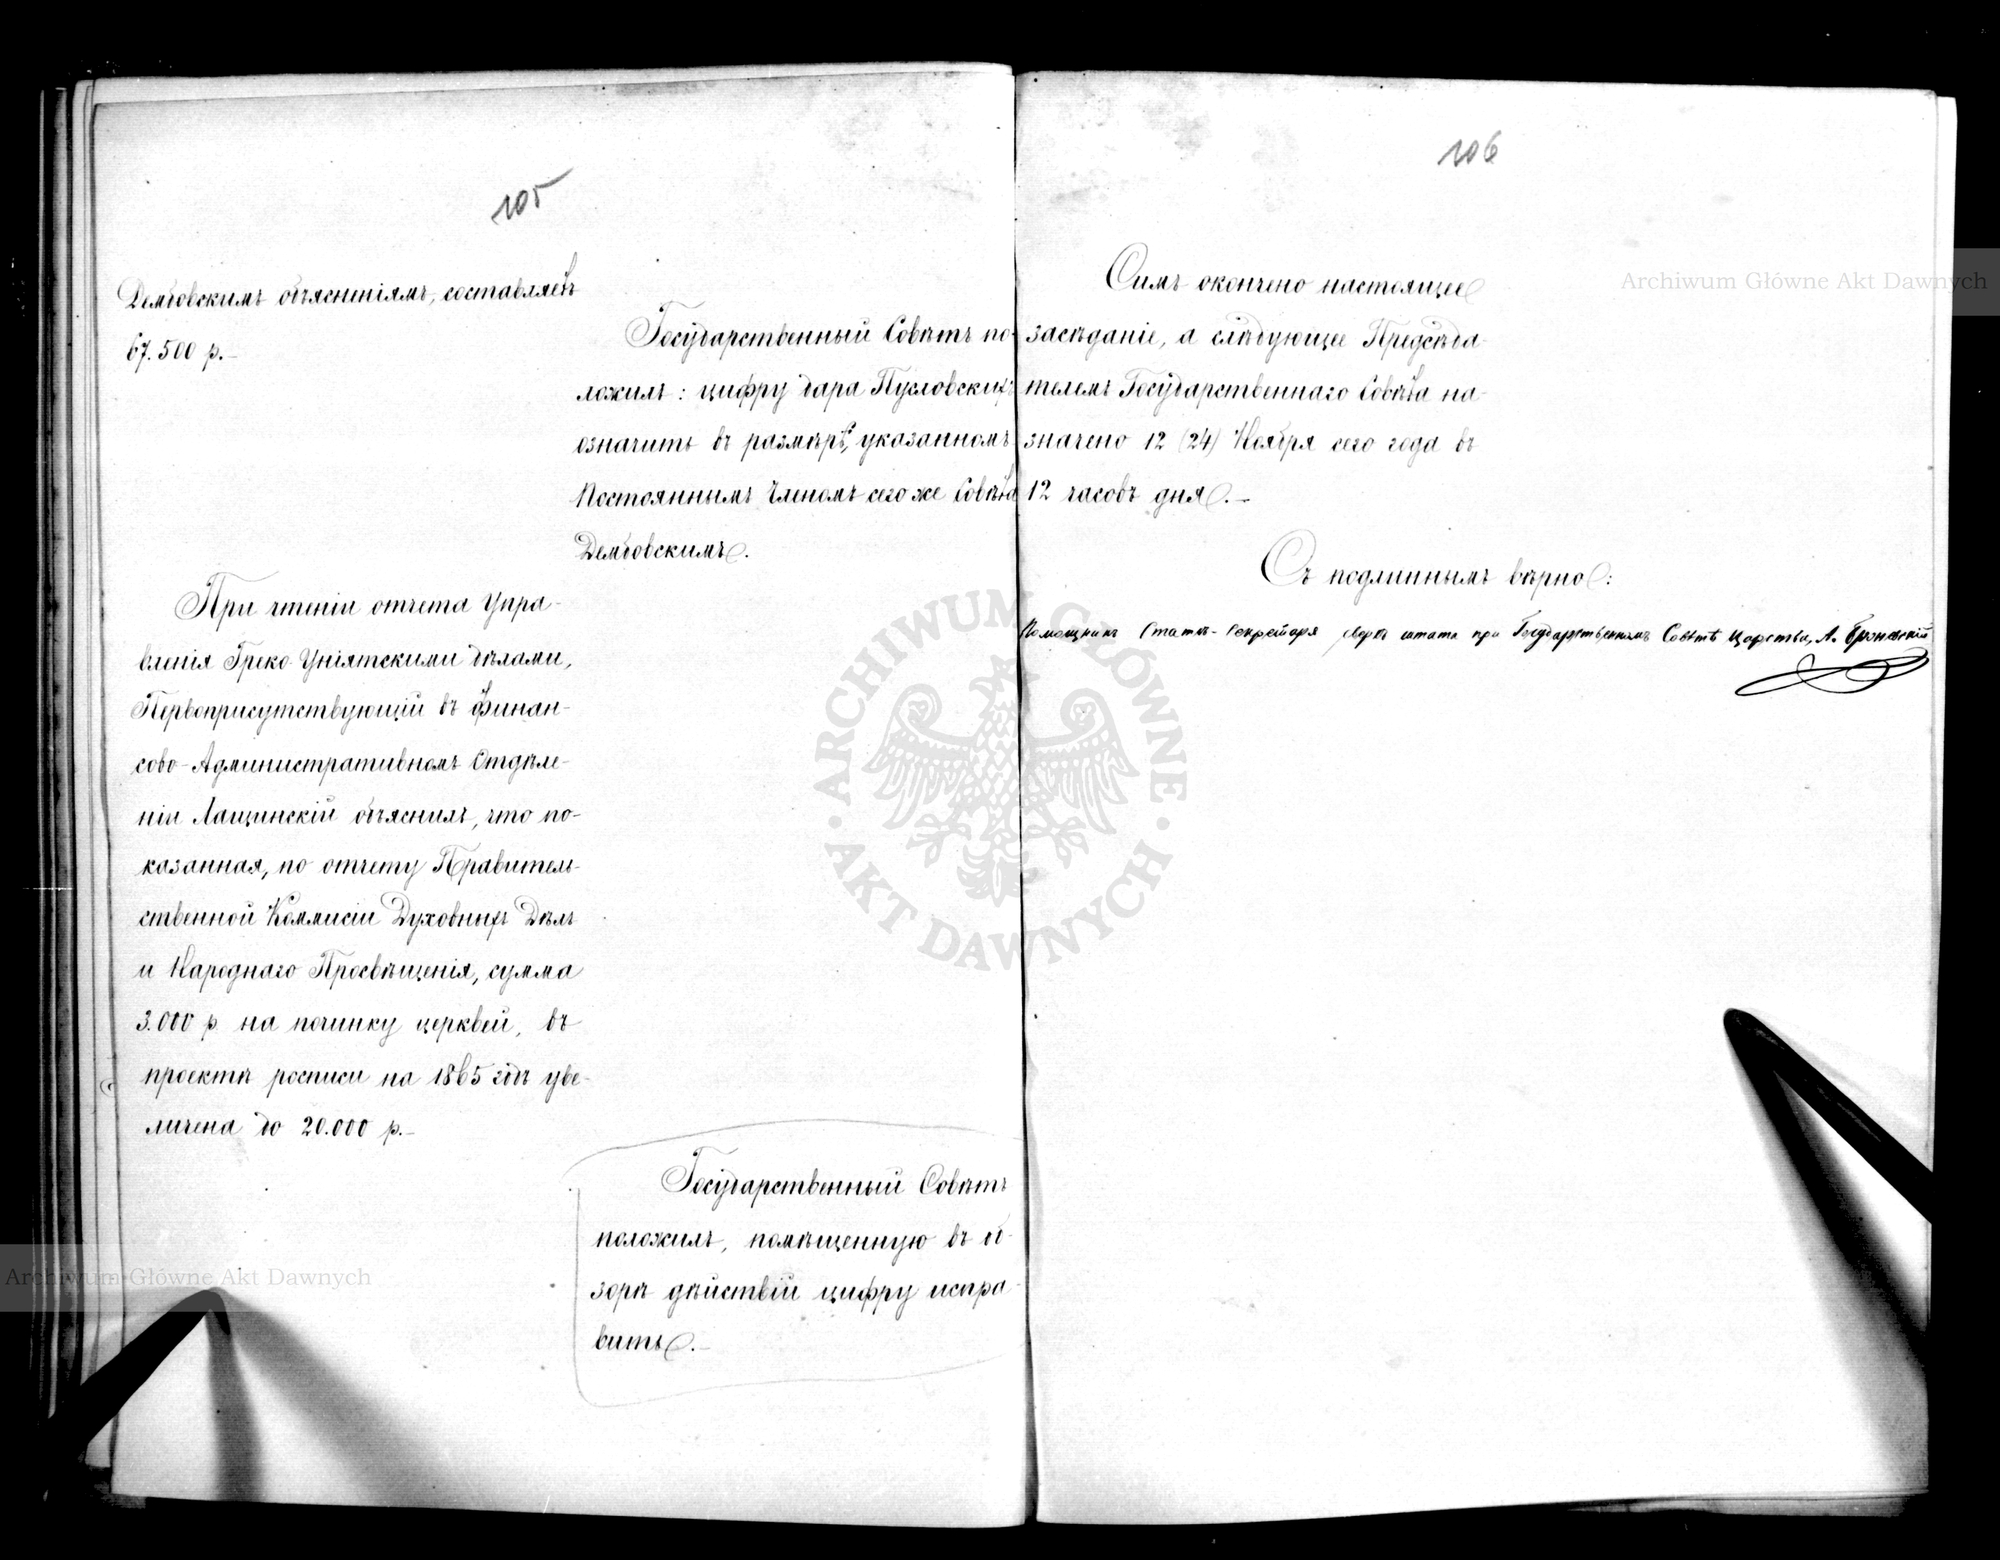 105
Дембовскимъ объясненіямъ, составляетъ
67.500 р.—
Государственный Совѣтъ по-
ложилъ: цифру дара Пусловскихъ
означить въ размѣрѣ, указанномъ
Постояннымъ Членомъ сего же Совѣта
Дембовскимъ.
При чтеніи отчета Упра-
вленія Греко-Уніятскими дѣлами,
Первоприсутствующій въ Финан-
сово-Административномъ Отдѣле-
ніи Лащинскій объяснилъ, что по-
казанная, по отчету Правитель-
ственной Коммисіи Духовныхъ Дѣлъ
и Народнаго Просвѣщенія, сумма
3.000 р. на починку церквей, въ
проектѣ росписи на 1865 годъ уве-
личена до 20.000 р.—
Государственный Совѣтъ
положилъ, помѣщенную въ об-
зорѣ дѣйствій цифру испра-
вить.—
106
Симъ окончено настоящее
засѣданіе, а слѣдующее Предсѣда-
телемъ Государственнаго Совѣта на-
значено 12 (24) Ноября сего года въ
12 часовъ дня.—
Съ подлиннымъ вѣрно:
Помощникъ Статсъ-Секретаря сверхъ штата при Государственномъ Совѣтѣ Царства, А.
Archiwum Główne Akt Dawnych
ARCHIWUM GŁÓWNE
· AKT DAWNYCH ·
Archiwum Główne Akt Dawnych